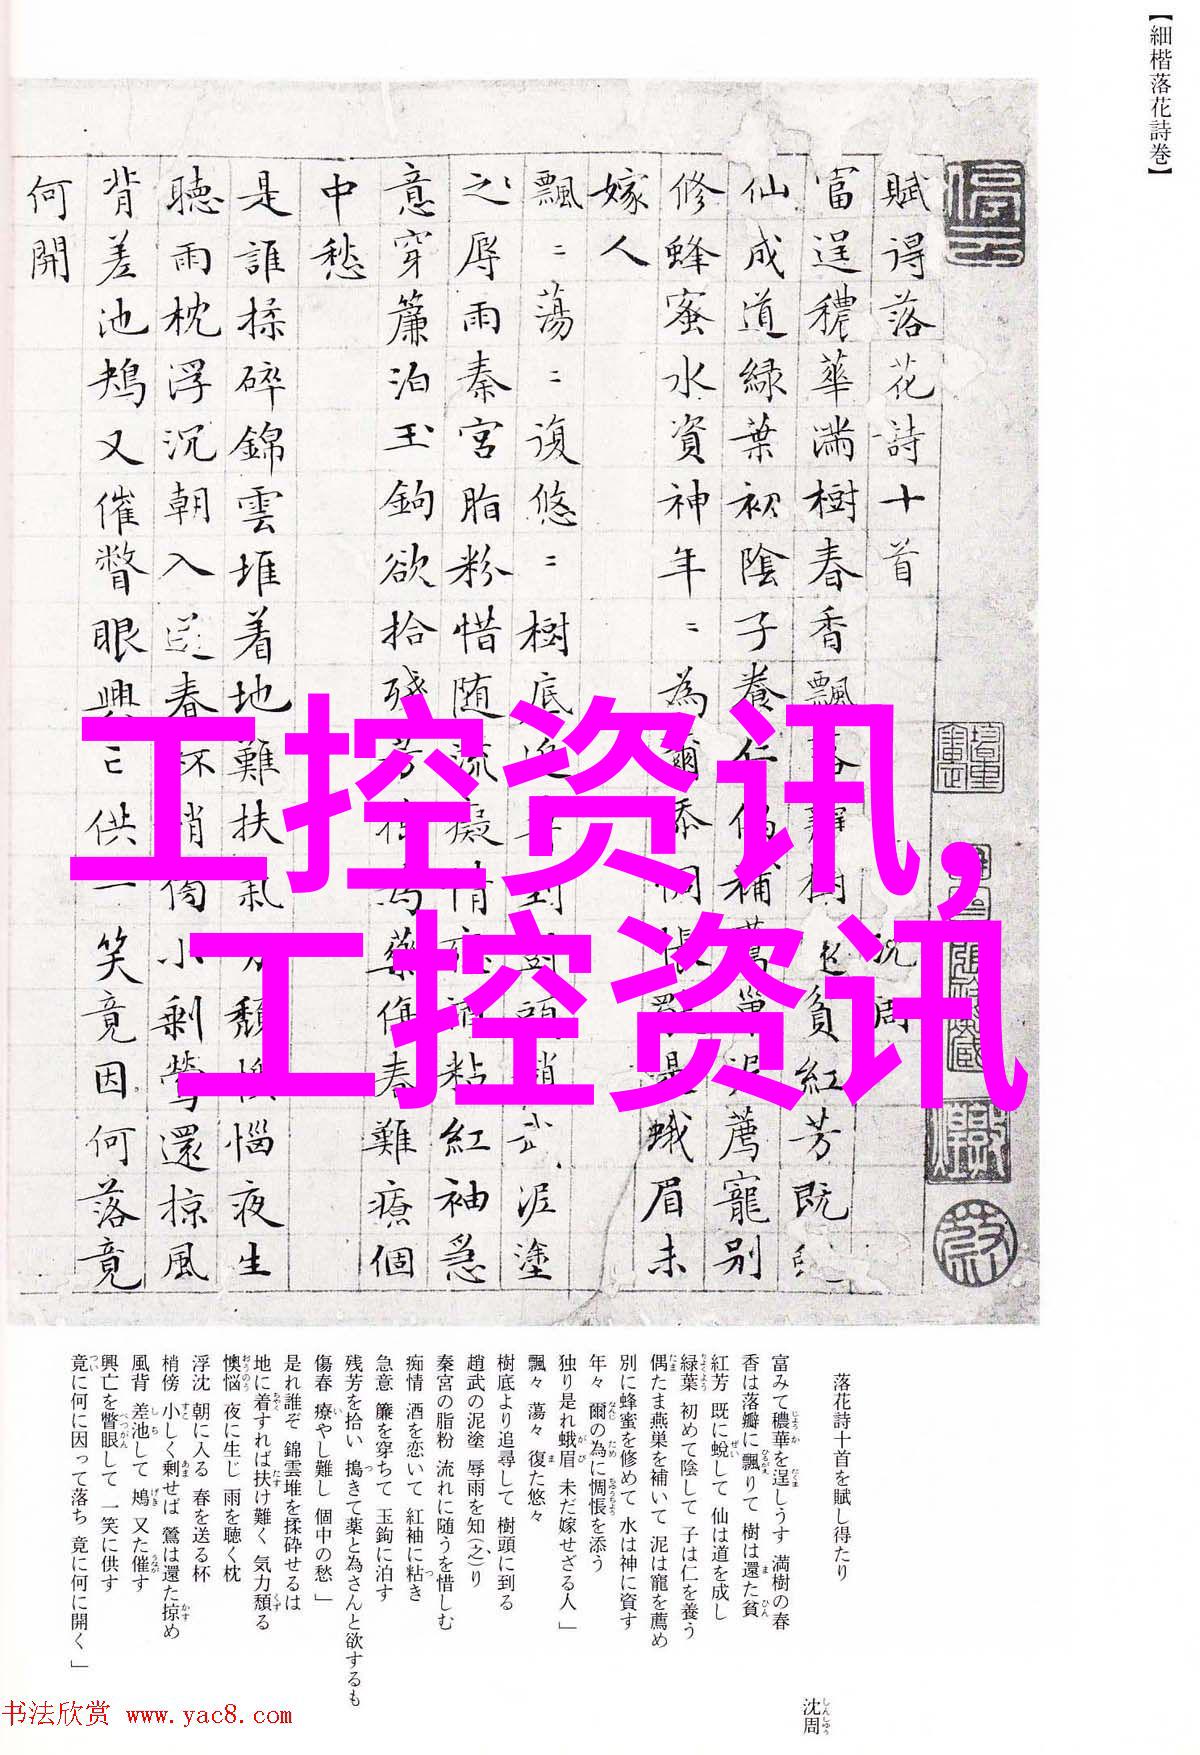 【細楷落花詩巻】
賦得落花詩十首 沈周
富逞穠華滿樹春香飄落瓣樹還貧紅芳既
仙成道綠葉初陰子養仁偶補燕巢泥薦寵別
修蜂蜜水資神年〻為爾添惆悵獨是蛾眉未
嫁人
飄〻蕩〻復悠〻樹底追尋到樹頭趙武泥塗
之辱雨秦宮脂粉惜随流癡情戀酒粘紅袖急
意穿簾泊玉鉤欲拾殘芳搗為藥傷春難療個
中愁
是誰揉碎錦雲堆着地難扶氣力頹懊惱夜生
聽雨枕浮沉朝入送春杯梢傍小剩鶯還掠風
背差池鴂又催瞥眼興亡供一笑竟因何落竟
何開
工控资讯,
工控资讯
落花詩十首を賦し得たり
沈周
富みて穠華を逞しうす 満樹の春
香は落瓣に飄りて 樹は還た貧
紅芳 既に蛻して 仙は道を成し
緑葉 初めて陰して 子は仁を養う
偶たま燕巣を補いて 泥は寵を薦め
別に蜂蜜を修めて 水は神に資す
年々 爾の為に惆悵を添う
独り是れ蛾眉 未だ嫁せざる人」
飄々 蕩々 復た悠々
樹底より追尋して 樹頭に到る
趙武の泥塗 辱雨を知(之)り
秦宮の脂粉 流れに随うを惜しむ
痴情 酒を恋いて 紅袖に粘き
急意 簾を穿ちて 玉鉤に泊す
残芳を拾い 搗きて薬と為さんと欲するも
傷春 療やし難し 個中の愁」
是れ誰ぞ 錦雲堆を揉砕せるは
地に着すれば扶け難く 気力頽る
懊悩 夜に生じ 雨を聴く枕
浮沈 朝に入る 春を送る杯
梢傍 小しく剰せば 鶯は還た掠め
風背 差池して 鴂 又た催す
興亡を瞥眼して 一笑に供す
竟に何に因って落ち 竟に何に開く」
书法欣赏 www.yac8.com